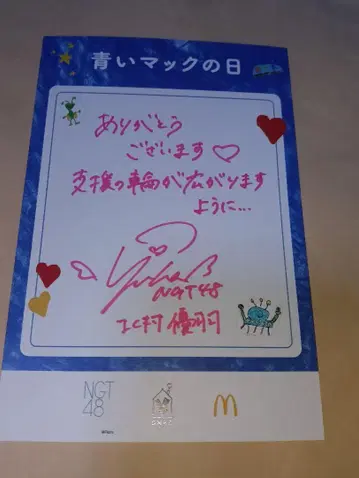 青いマックの日
ありがとう
ございます♡
支援の輪が広がります
ように…
NGT48
北村 優羽
NGT
48